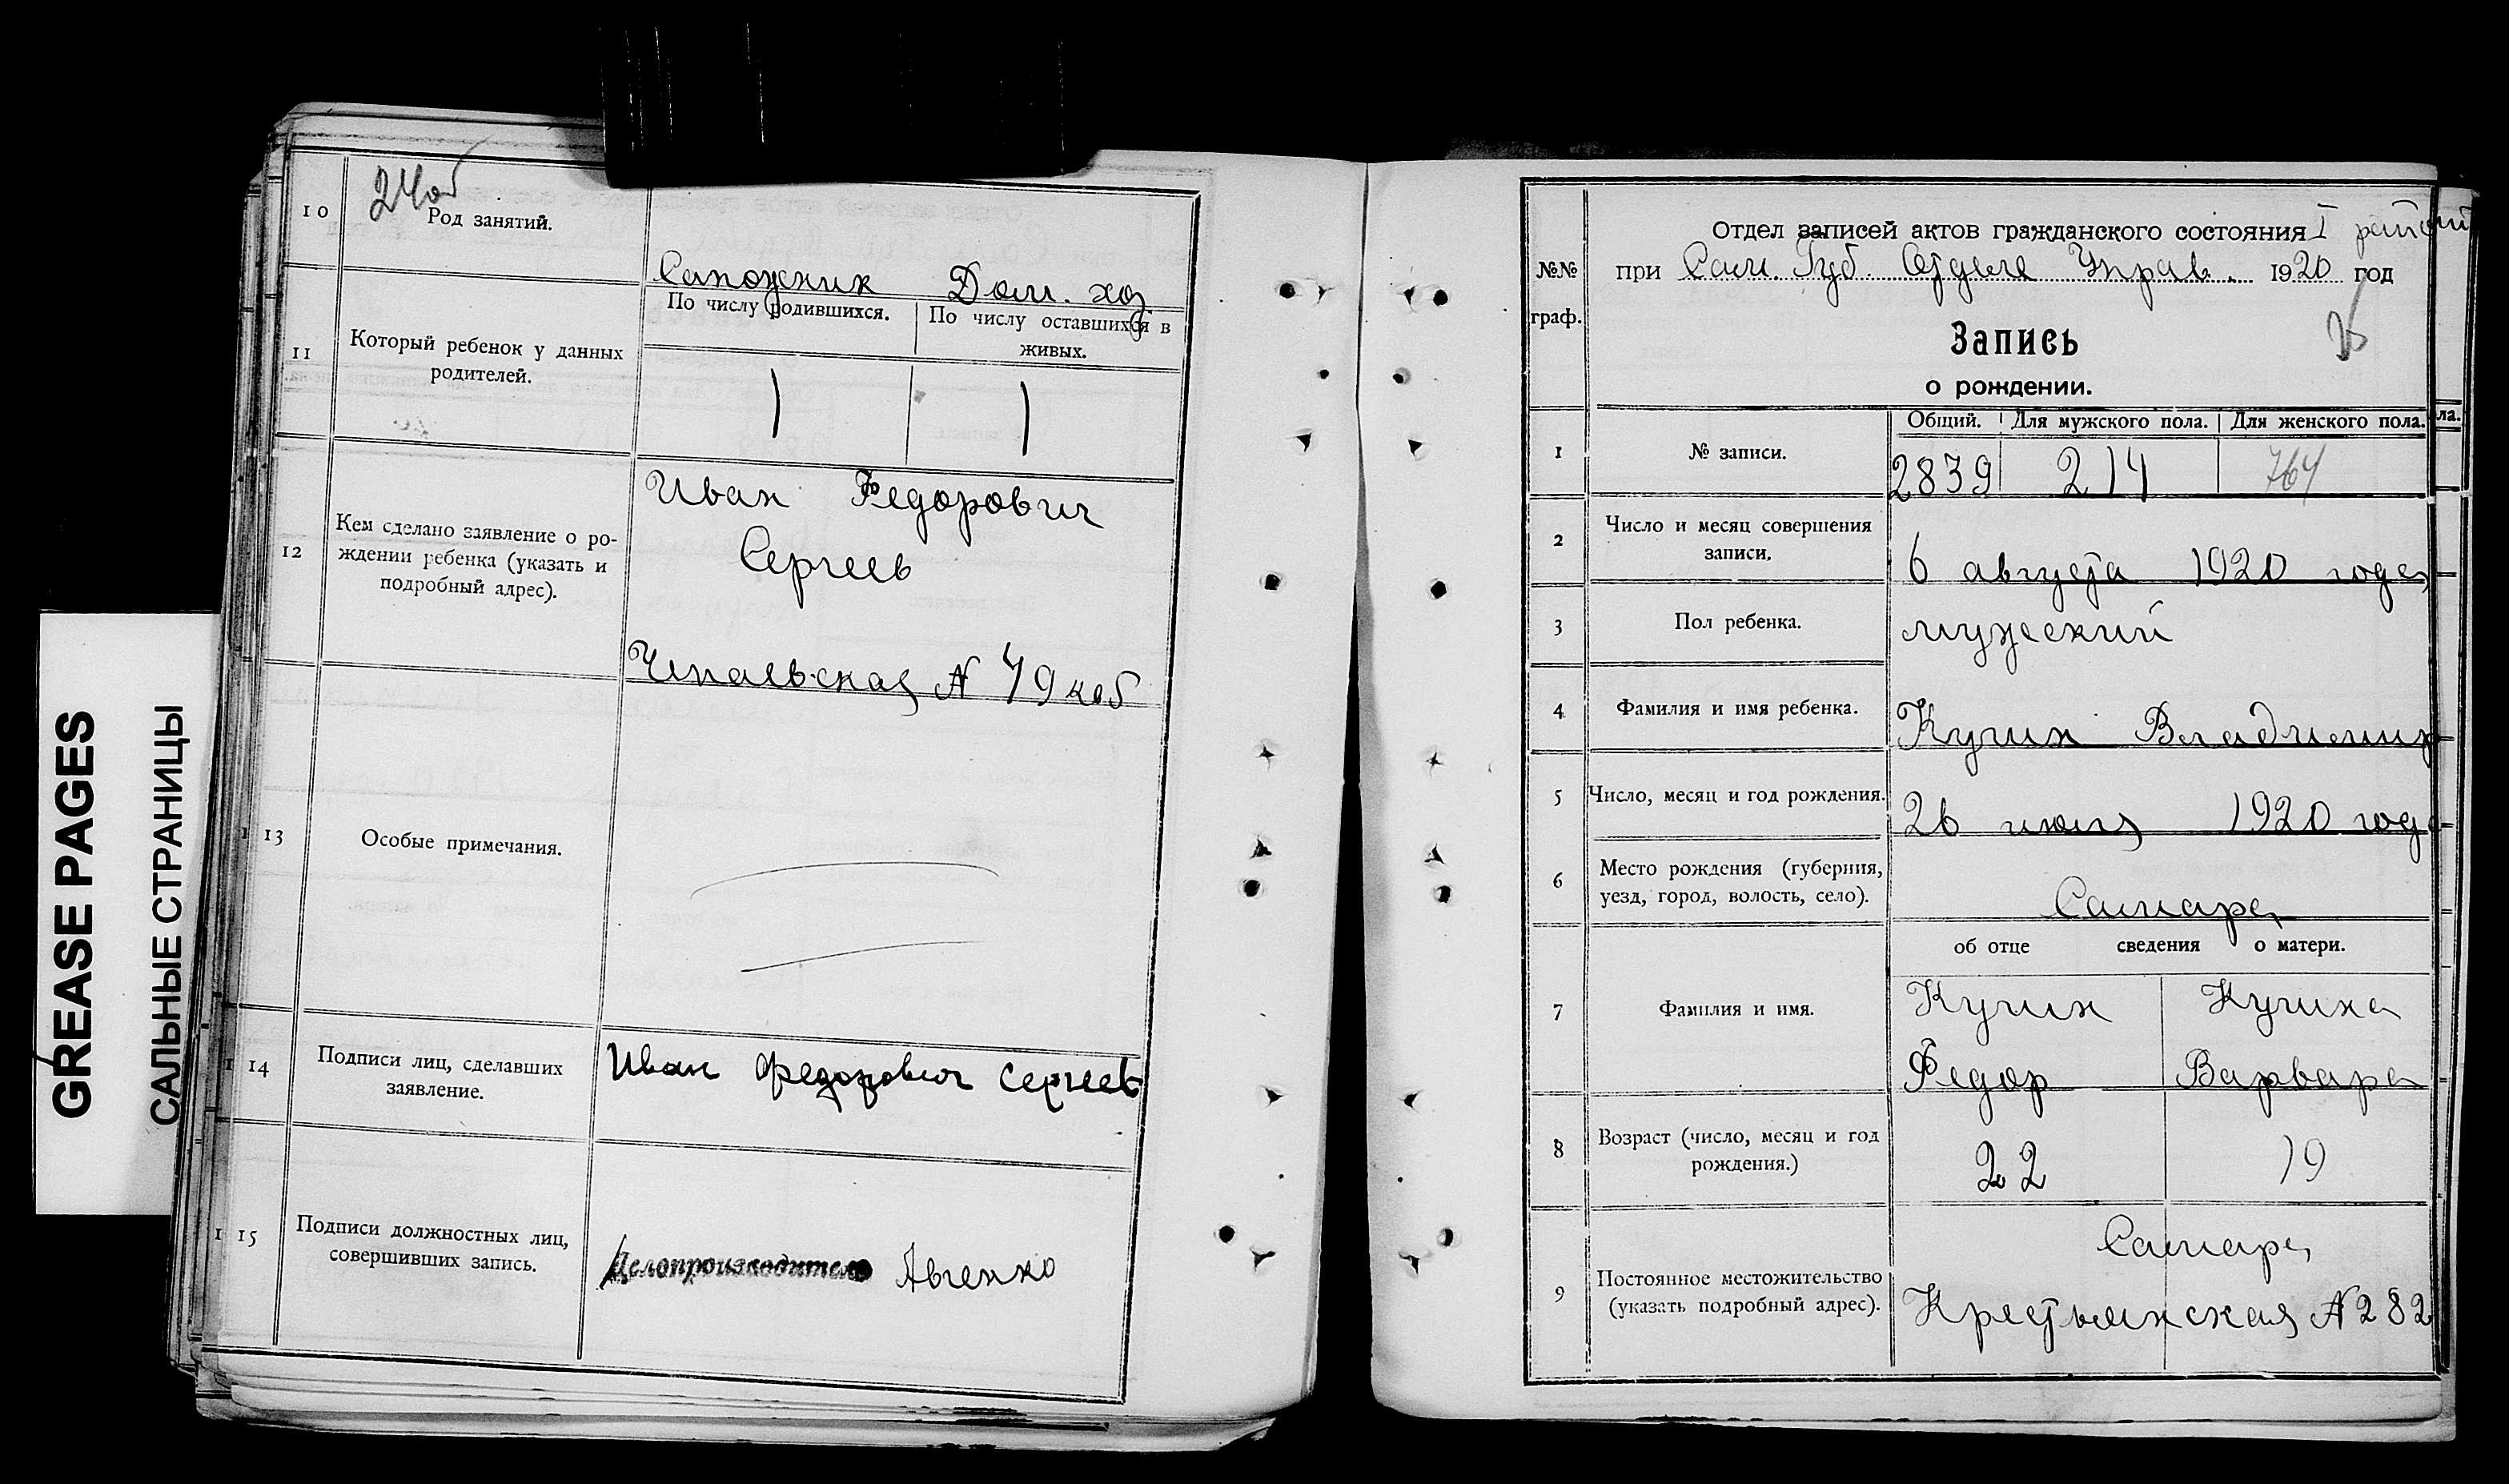 GREASE PAGES
САЛЬНЫЕ СТРАНИЦЫ
24об
10
Род занятий.
Сапожник Дом. хоз
11
Который ребенок у данных
родителей.
По числу родившихся.
По числу оставшихся в
живых.
1 1
12
Кем сделано заявление о ро-
ждении ребенка (указать и
подробный адрес).
Иван Федорович
Сергеев
№ 79
13
Особые примечания.
14
Подписи лиц, сделавших
заявление.
Иван Федорович Сергеев
15
Подписи должностных лиц,
совершивших запись.
Делопроизводитель Авченко
№№
граф.
Отдел записей актов гражданского состояния I район
при Сам. Губ. Отделе Управ. 1920 год
25
Запись
о рождении.
1
№ записи.
Общий. Для мужского пола. Для женского пола.
2839 214 764
2
Число и месяц совершения
записи.
6 августа 1920 года
3
Пол ребенка.
мужеский
4
Фамилия и имя ребенка.
Кучин Владимир
5
Число, месяц и год рождения.
26 июля 1920 года
6
Место рождения (губерния,
уезд, город, волость, село).
Самара
об отце сведения о матери.
7
Фамилия и имя.
Кучин Кучина
Федор Варвара
8
Возраст (число, месяц и год
рождения.)
22 19
9
Постоянное местожительство
(указать подробный адрес).
Самара
Крестьянская № 282